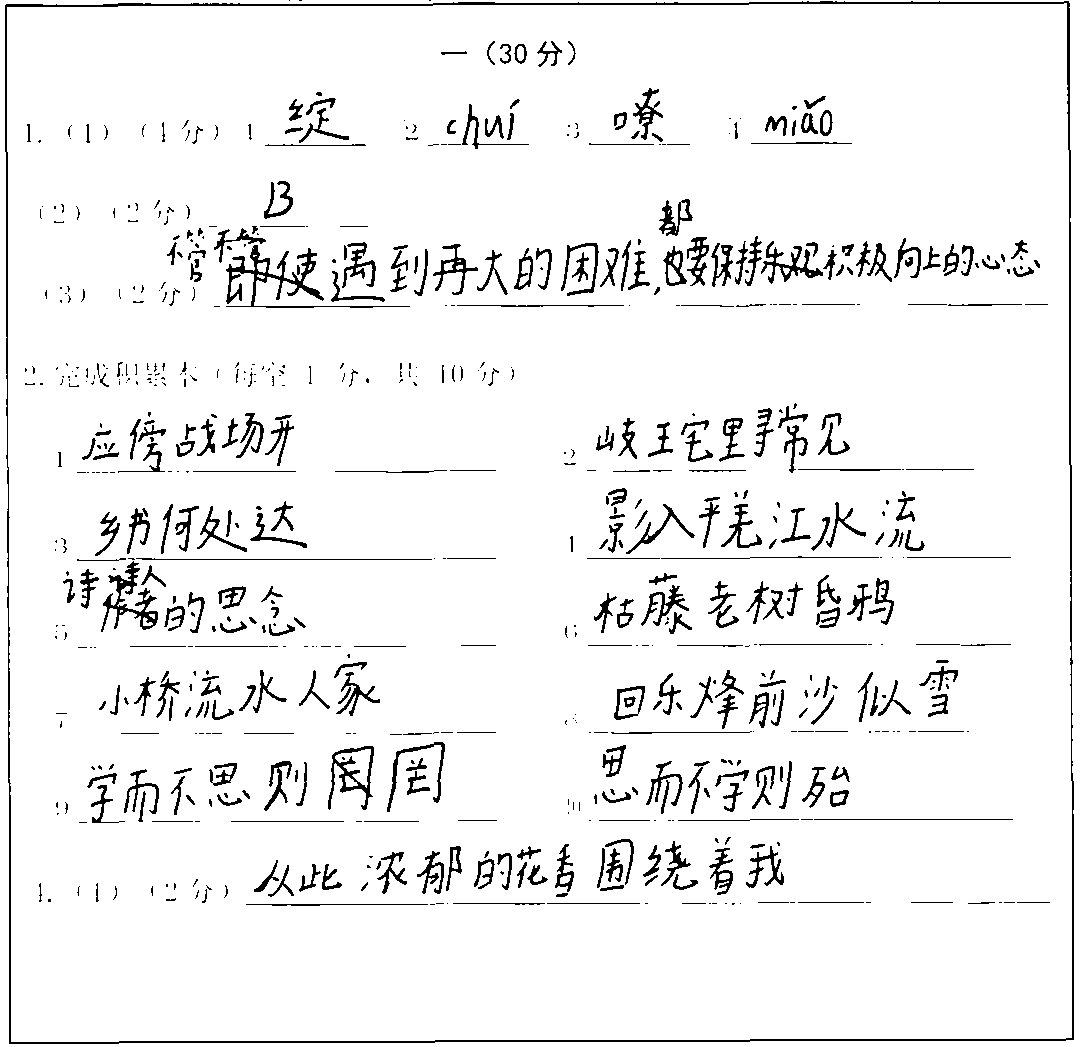 一（30分）
1.（1）（4分）1 绽 2 chuí 3 嘹 4 miǎo
（2）（2分） B
不管 不管 都
（3）（2分） 即使遇到再大的困难,也要保持乐观积极向上的心态
2.完成积累本（每空 1 分，共 10 分）
1 应傍战场开 2 岐王宅里寻常见
3 乡书何处达 4 影入平羌江水流
诗 诗人
5 作者的思念 6 枯藤老树昏鸦
7 小桥流水人家 8 回乐烽前沙似雪
9 学而不思则罔 10 思而不学则殆
4.（1）（2分） 从此浓郁的花香围绕着我